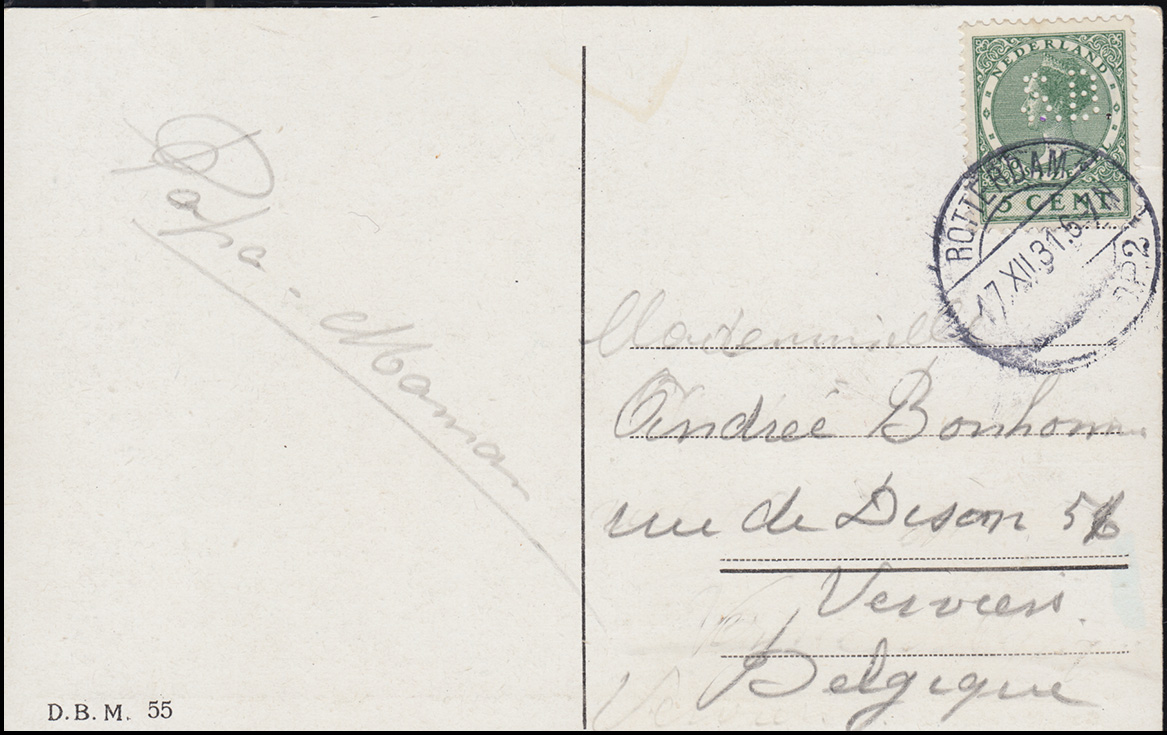 NEDERLAND
5 CENT
ROTTERDAM
17.XII.31.6-7N
Papa - Maman
Mademoiselle
Andrée Bonhomme
rue de Dison 56
Verviers
Belgique
D.B.M. 55